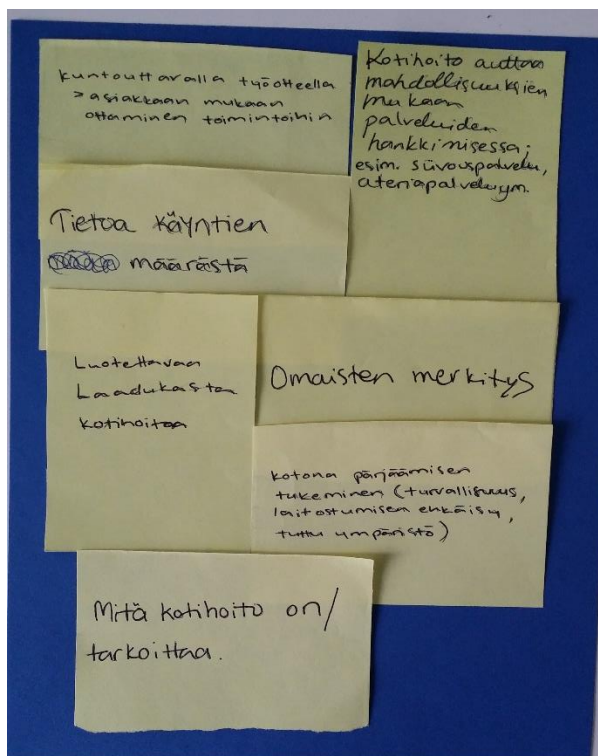 kuntouttavalla työotteella
> asiakkaan mukaan
ottaminen toimintoihin
Kotihoito auttaa
mahdollisuuksien
mukaan
palveluiden
hankkimisessa;
esim. siivouspalvelu,
ateriapalvelu ym.
Tietoa käyntien
määrästä
Luotettavaa
Laadukasta
kotihoitoa
Omaisten merkitys
kotona pärjäämisen
tukeminen (turvallisuus,
laitostumisen ehkäisy,
tuttu ympäristö)
Mitä kotihoito on/
tarkoittaa.